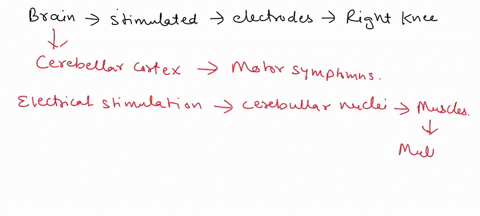 Brain → stimulated → electrodes → Right knee
Cerebellar cortex → Motor symphmns.
Electrical stimulation → cerebullar nuclei → Muscles.
Mul